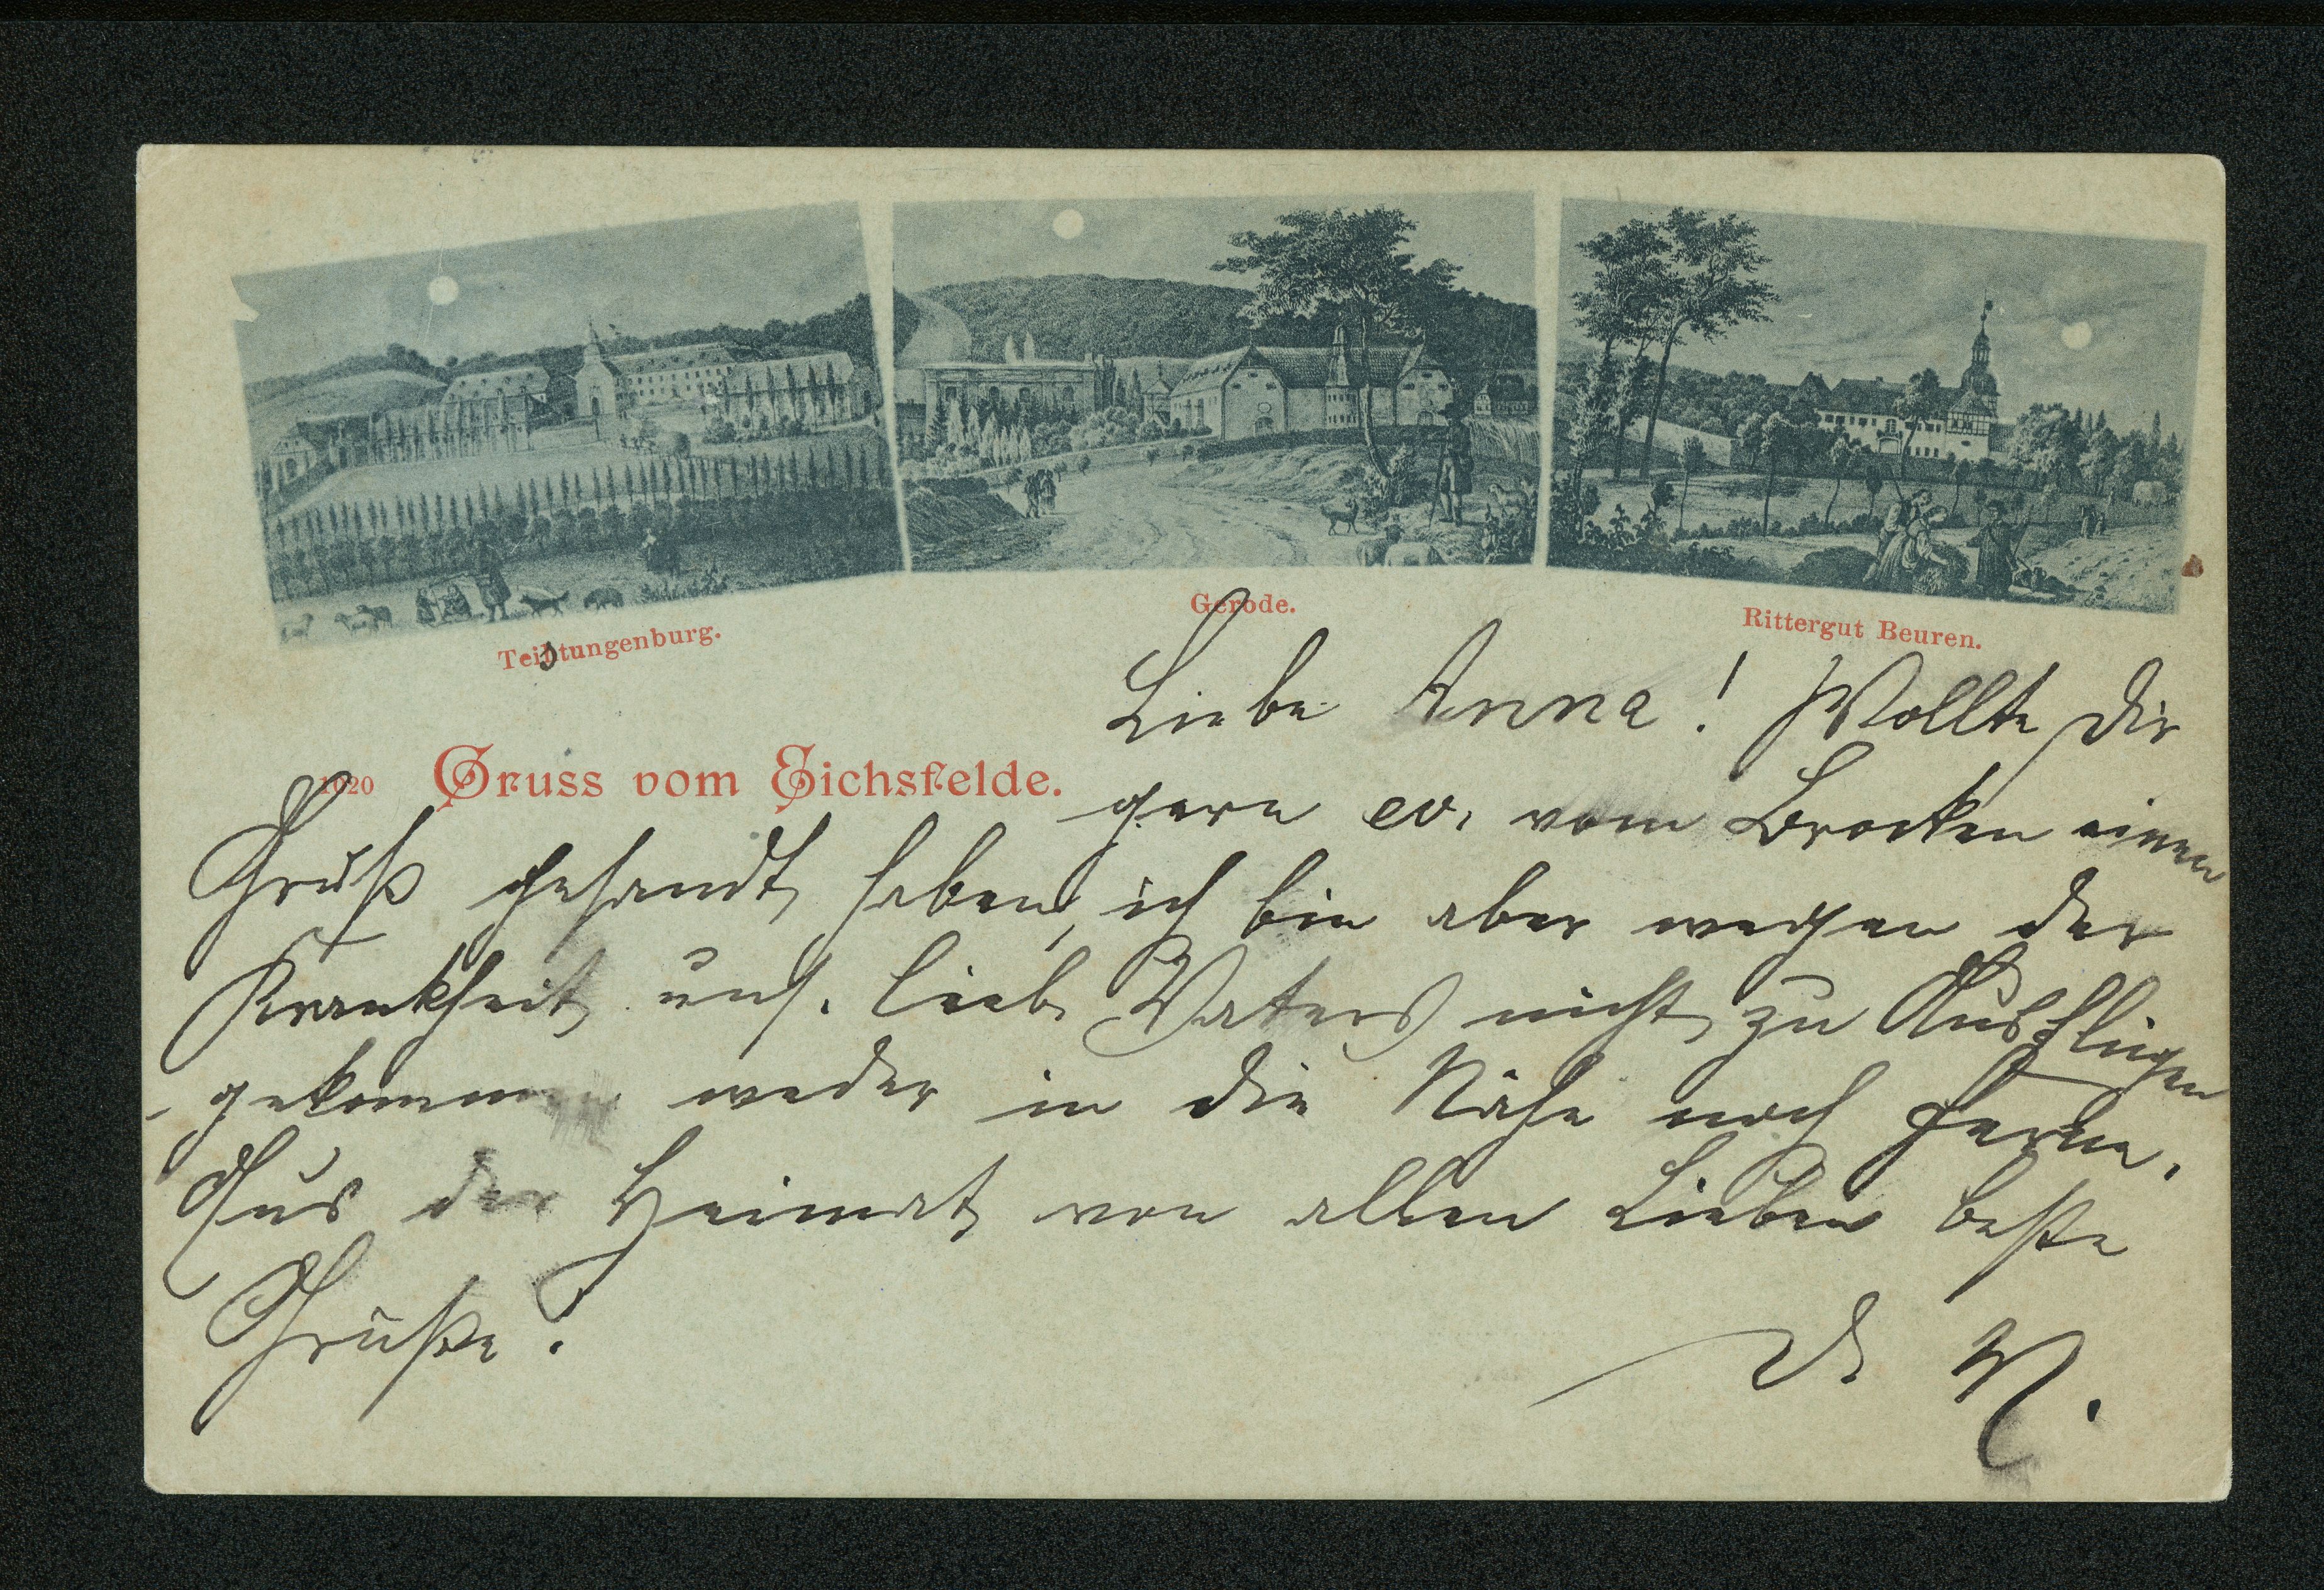 Teistungenburg.
Gerode.
Rittergut Beuren.
1020 Gruss vom Eichsfelde.
Liebe Anna! Wollte Dir
gern ev. vom Brocken einen
Gruß gesandt haben, ich bin aber wegen der
Krankheit uns. lieb. Vaters nicht zu Ausflügen
gekommen weder in die Nähe noch Ferne.
Aus der Heimat von allen Lieben beste
Grüße.